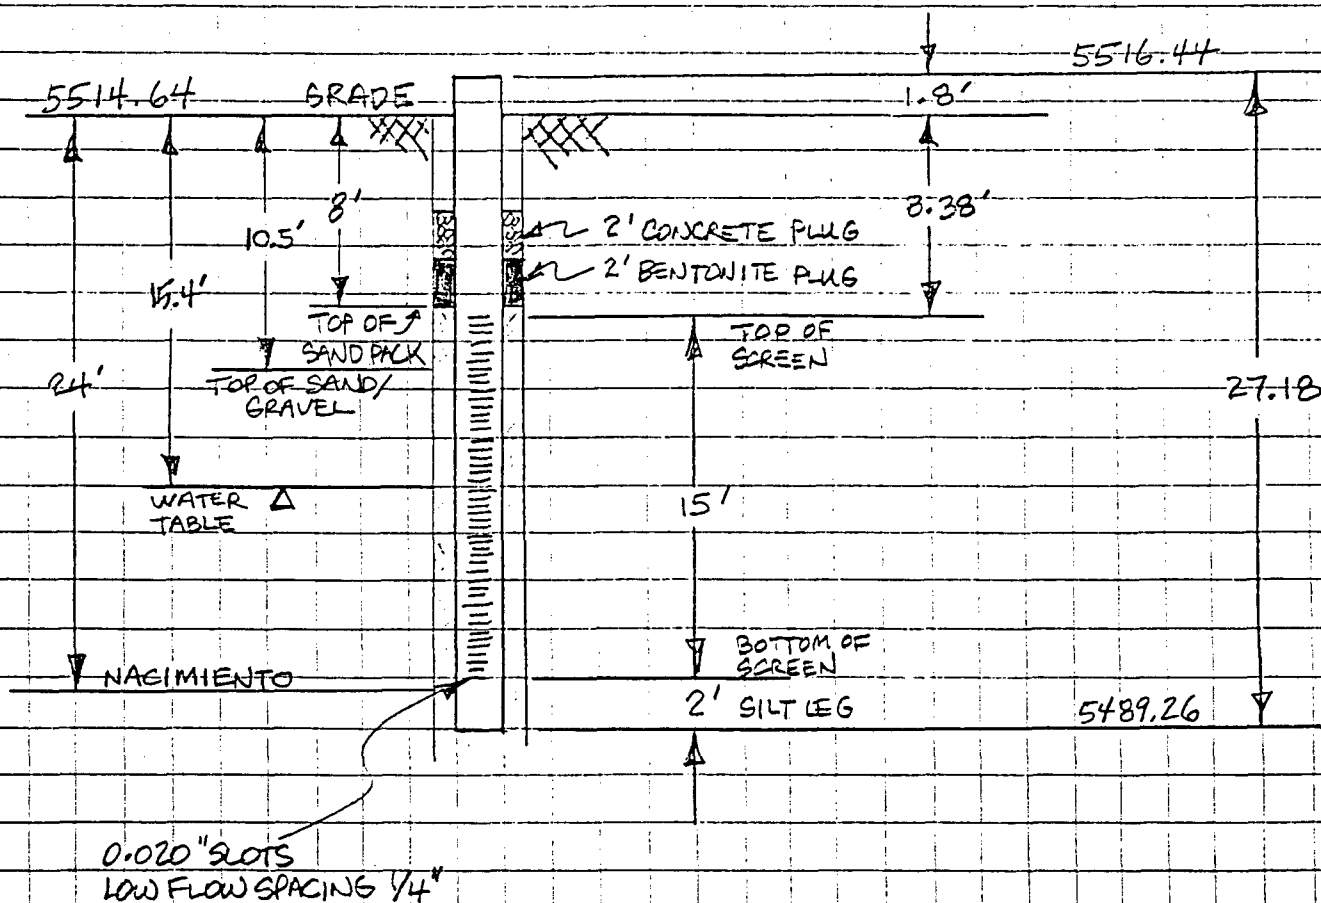 5516.44
5514.64 GRADE
1.8'
8'
8.38'
10.5'
2' CONCRETE PLUG
2' BENTONITE PLUG
15.4'
TOP OF
SAND PACK
TOP OF
SCREEN
24'
TOP OF SAND/
GRAVEL
27.18
WATER
TABLE
15'
BOTTOM OF
SCREEN
NACIMIENTO
2' SILT LEG
5489.26
0.020" SLOTS
LOW FLOW SPACING 1/4"